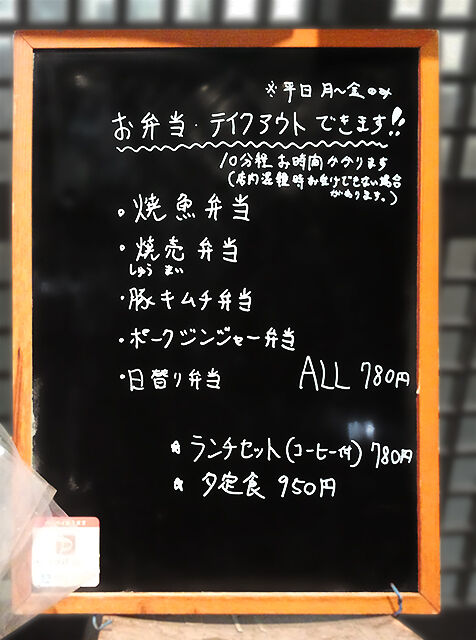 ※平日 月～金のみ
お弁当・テイクアウト できます!!
10分程お時間かかります
(店内混雑時お受けできない場合
があります。)
・焼魚弁当
・焼売弁当
しゅうまい
・豚キムチ弁当
・ポークジンジャー弁当
・日替り弁当 ALL 780円
☆ ランチセット(コーヒー付) 780円
☆ 夕定食 950円